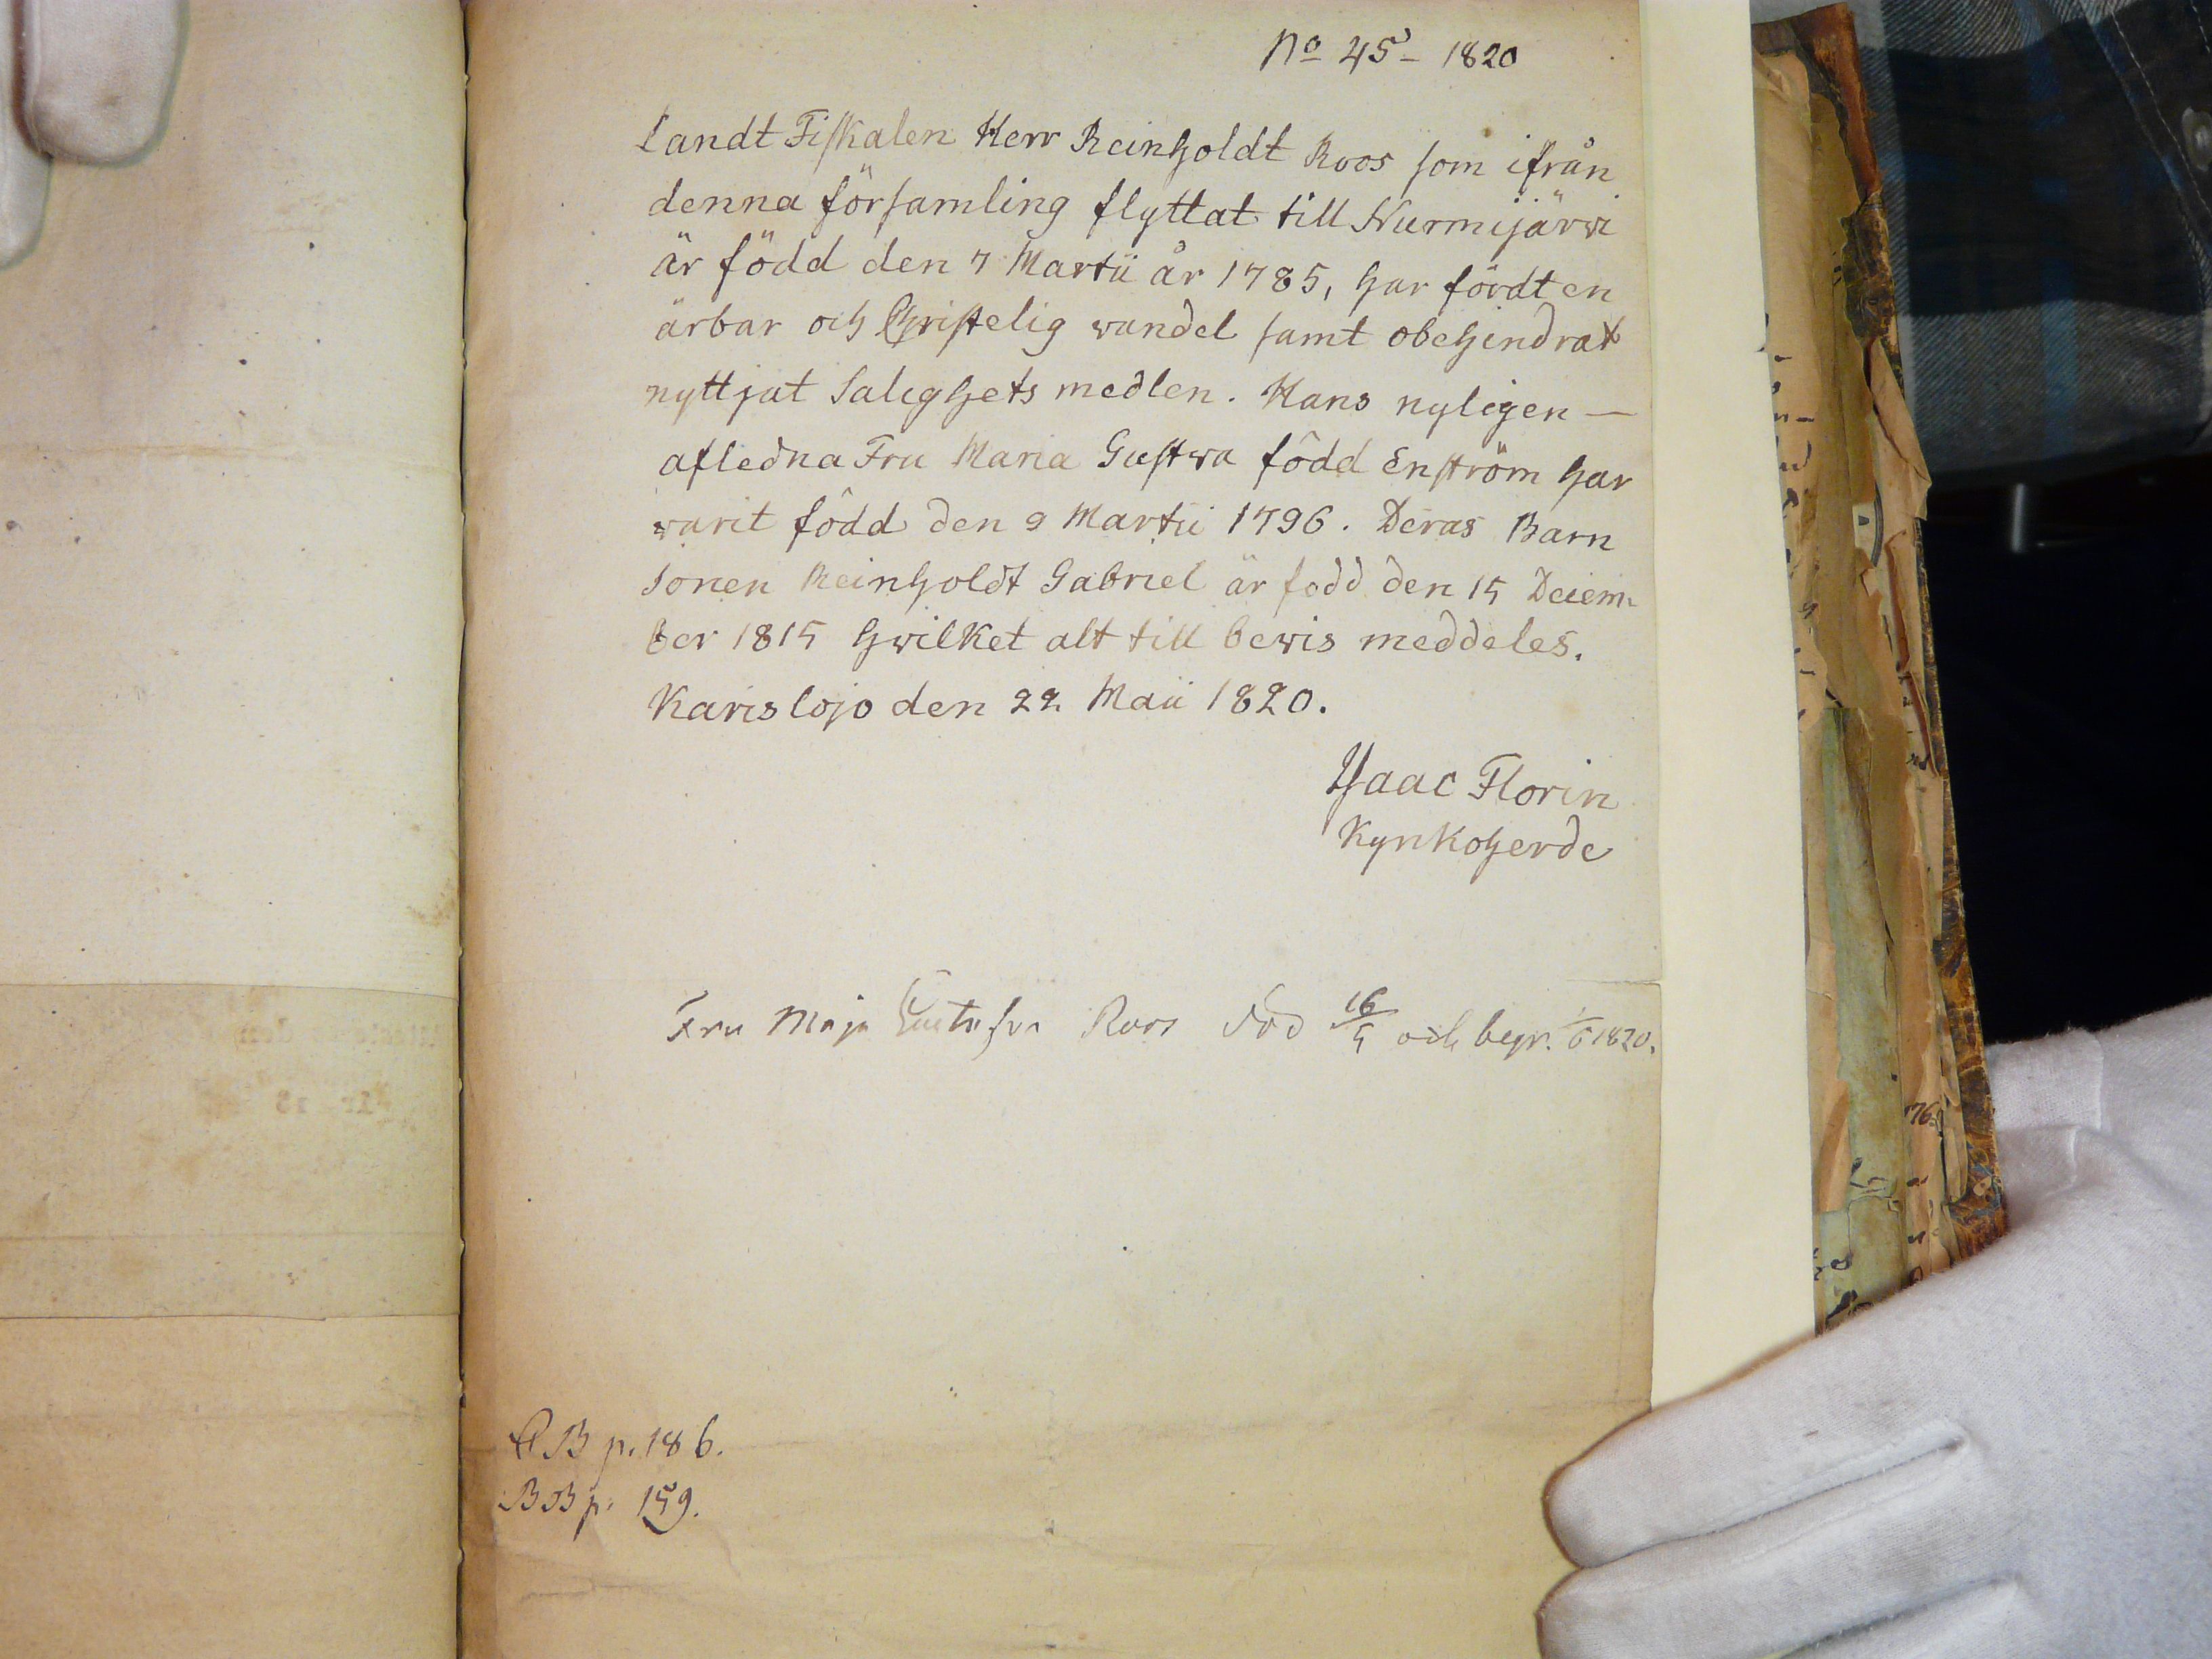 No 45 - 1820
Landt Fiskalen Herr Reinholdt Roos som ifrån
denna församling flyttat till Nurmijärwi
är född den 7 Martii år 1785, har fördt en
ärbar och Christelig wandel samt obehindrat
nyttjat Salighets medlen. Hans nyligen —
afledna Fru Maria Gustwa född Enström har
warit född den 9 Martii 1796. Deras Barn
Sonen Reinholdt Gabriel är född den 15 Decem-
ber 1815 hwilket alt till bewis meddeles.
Karislojo den 22 Maii 1820.
Isaac Florin
Kyrkoherde
Fru Maja Gustafva Roos död 16/5 och begr. 1/6 1820.
BB p. 159.
p. 186.